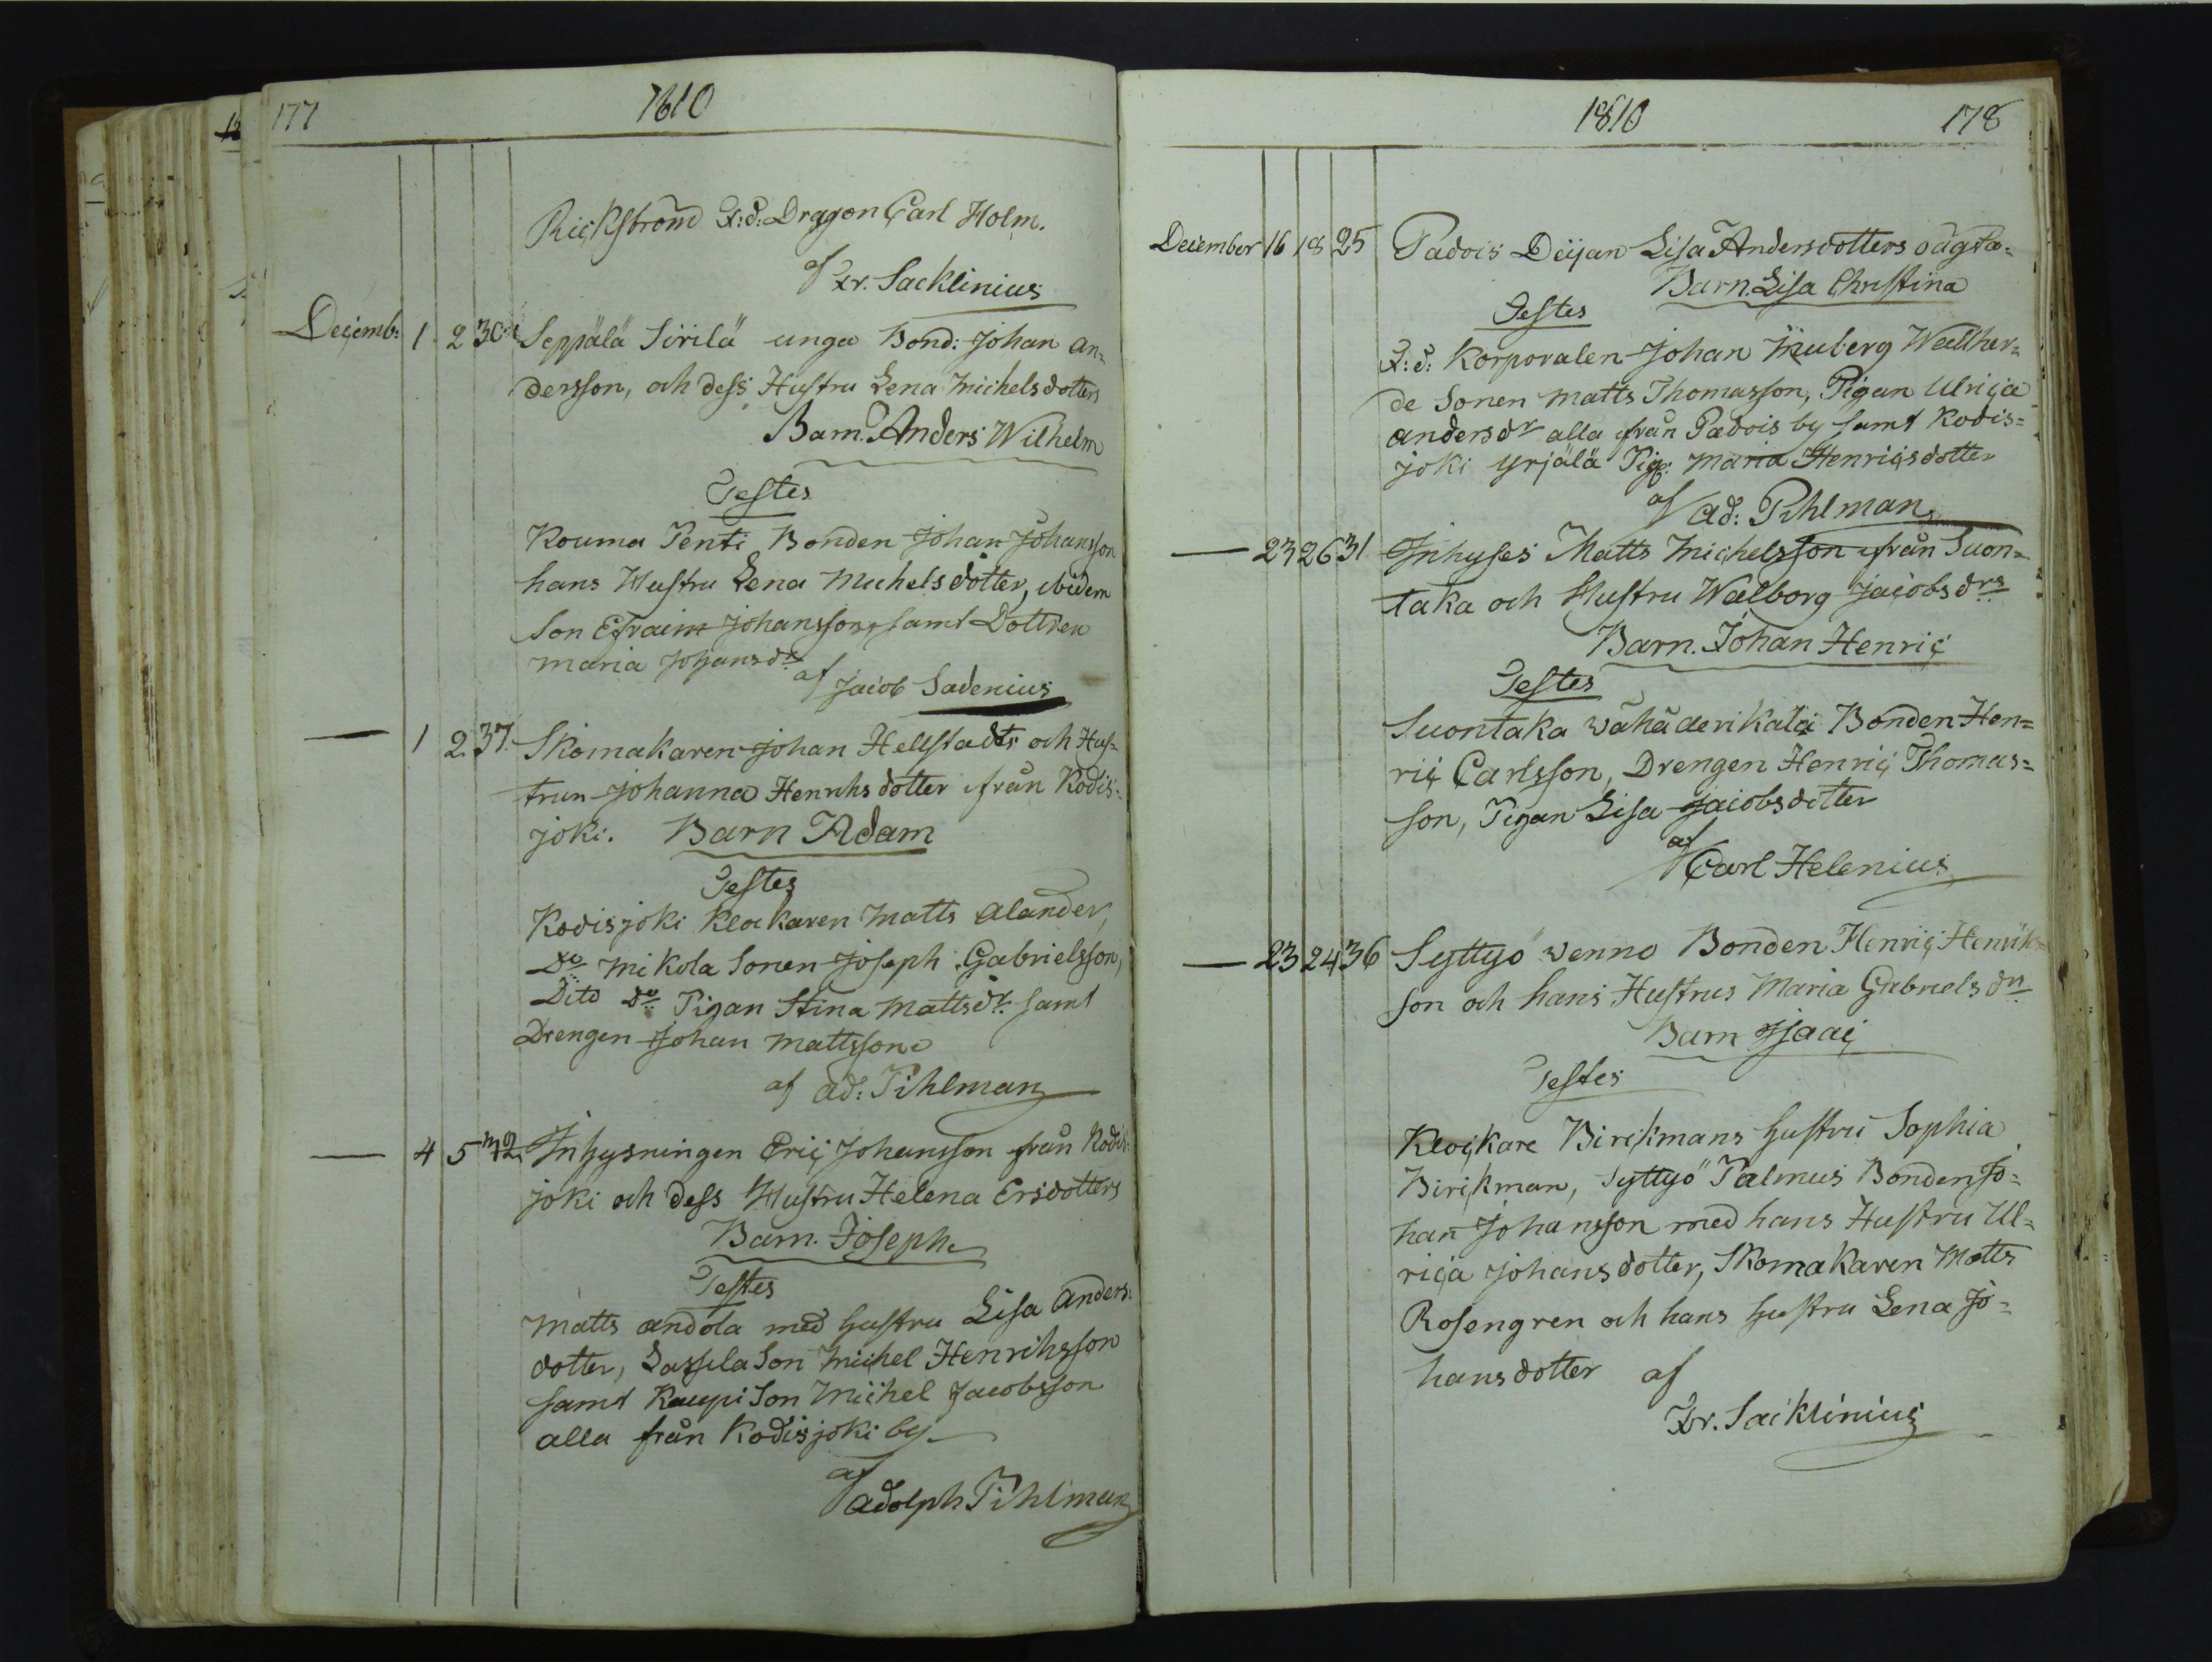 177
1810
Rickström F:d: Dragon Carl Holm.
af Fr. Sacklinius
Decemb: 1 2 30 Seppälä Sirilä unga Bond: Johan An=
dersson, och dess Hustru Lena Michelsdotters
Barn. Anders Wilhelm
Testes
Kouma Penti Bonden Johan Johansson
hans Hustru Lena Michelsdotter, ibidem
Son Efraim Johansson, samt Dottren
Maria Johansdr
af Jacob Sadenius
— 1 2 37. Skomakaren Johan Hellstadts och Hus=
trun Johanna Henriksdotter ifrån Kodis=
joki. Barn Adam
Testes
Kodisjoki Klockaren Matts Alander,
Do Mikola Sonen Joseph Gabrielsson,
Dito do Pigan Stina Mattsdr. samt
Drengen Johan Mattsson
af Ad: Pihlman
— 4 5 42 Inhysningen Eric Johansson från Kodis=
joki och dess Hustru Helena Ersdotters
Barn. Joseph
Testes
Matts Andola med hustru Lisa Anders=
dotter, Son Michel Henriksson
samt Kaupi Son Michel Jacobsson
alla från Kodisjoki by
af
Adolph Pihlman
1810
178
December 16 18 25 Padois Deijan Lisa Andersdotters oägta=
Barn. Lisa Christina
Testes
F:d: Korporalen Johan Wallher=
de Sonen Matts Thomasson, Pigan Ulrica
Andersdr alla ifrån Padois by samt Kodis=
joki Yrjälä Pig: Maria Henricsdotter
af Ad: Pihlman
— 23 26 31 Inhyses Matts Michelsson ifrån Suon=
taka och Hustru Walborg Jacobsdrs
Barn. Johan Henric
Testes
Suontaka Wähäderikala Bonden Hen=
ric Carlsson, Drengen Henric Thomas=
son, Pigan Lisa Jacobsdotter
af
Carl Helenius
— 23 24 36 Syttyö Wenno Bonden Henric Henriks=
son och hans Hustrus Maria Gabrielsdrs
Barn Isaac
Testes
Klockare Birckmans hustru Sophia
Birckman, Syttyö Palmus Bonden Jo=
han Johansson med hans Hustru Ul=
rica Johansdotter, Skomakaren Matts
Rosengren och hans hustru Lena Jo=
hansdotter af
Fr. Sacklinius